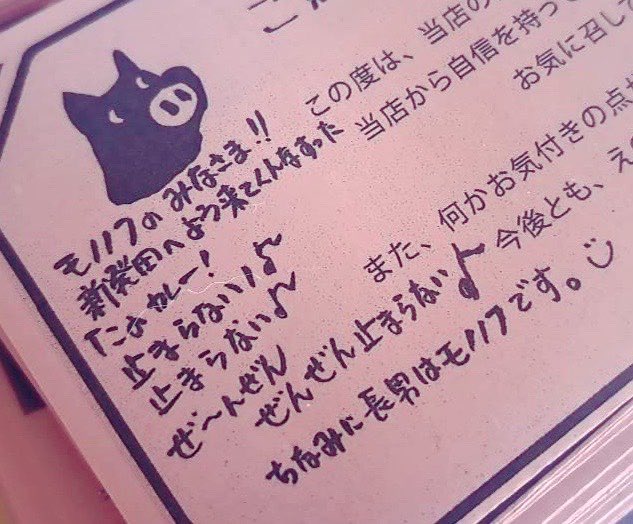 この度は、当店の
当店から自信を持って
お気に召して
また、何かお気付きの点が
今後とも、え
モノノフのみなさま!!
新発田へよう来てくんなすった
カレー!
止まらない!♪
止まらない♪
ぜ〜んぜん
ぜんぜん止まらない♪
ちなみに長男はモノノフです。